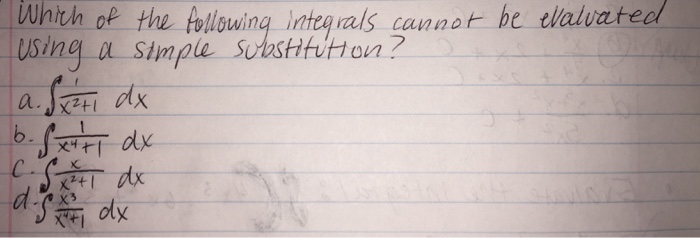 Which of the following integrals cannot be evaluated
using a simple substitution?
a. ∫ 1/(x²+1) dx
b. ∫ 1/(x⁴+1) dx
c. ∫ x/(x²+1) dx
d. ∫ x³/(x⁴+1) dx